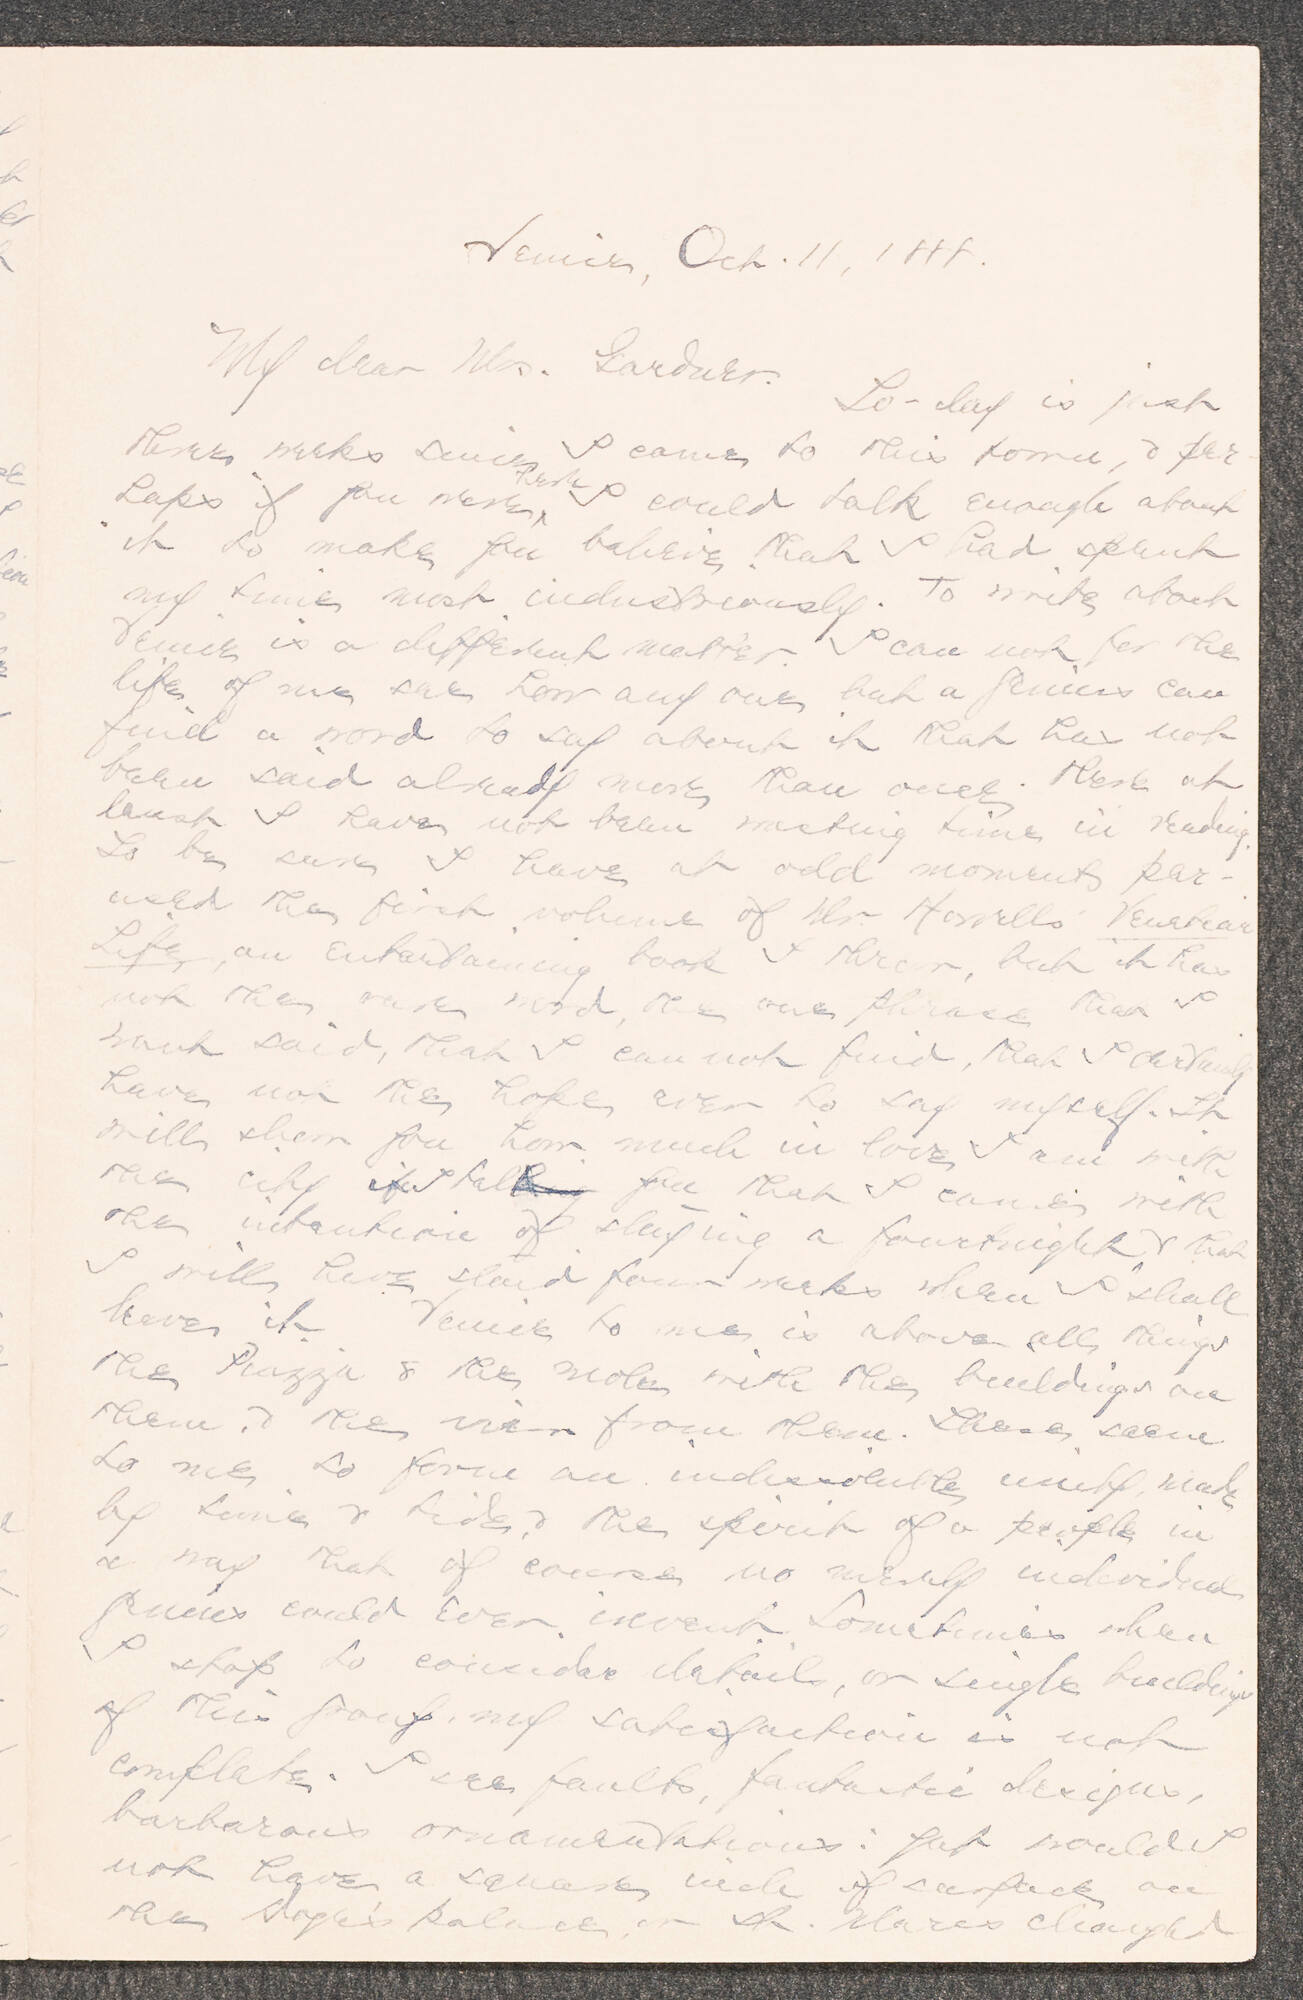 Venice, Oct. 11, 1888.
My dear Mrs. Gardner.
To-day is just
three weeks since I came to this town, & per-
haps if you were here I could talk enough about
it to make you believe that I had spent
my time most industriously. To write about
Venice is a different matter. I can not for the
life of me see how any one but a genius can
find a word to say about it that has not
been said already more than once. Here at
least I have not been wasting time in reading.
To be sure I have at odd moments per-
used the first volume of Mr. Howells' Venetian
Life, an entertaining book I , but it has
not the one word, the one phrase that I
want said, that I can not find, that I certainly
have not the hope ever to say myself. It
will show you how much in love I am with
the city if I tell you that I came with
the intention of staying a fourtnight, & that
I will have staid four weeks when I shall
leave it. Venice to me is above all things
the Piazza & the mole with the buildings on
them, & the view from them. These seem
to me to form an indissoluble unity, made
by time & tide, & the spirit of a people in
a way that of course no merely individual
genius could ever invent. Sometimes when
I stop to consider details, or single buildings
of this group, my satisfaction is not
complete. I see faults, fantastic designs,
barbarous ornamentations: yet would I
not have a square inch of surface on
the Doge's palace, or St. Marcs changed